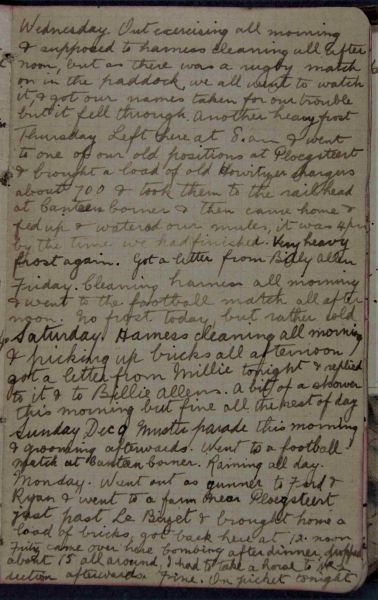 Wednesday. Out exercising all morning
& supposed to harness cleaning all after
noon, but as there was a rugby match
on in the paddock, we all went to watch
it, & got our names taken for our trouble
but it fell through. Another heavy frost
Thursday Left here at 8. am & went
to one of our old positions at Ploegsteert
& brought a load of old Howitzer chargers
about 700 & took them to the railhead
at Canteen Corner & then came home &
fed up & watered our mules, it was 4 pm
by the time we had finished. Very heavy
frost again. Got a letter from Billy Allen
Friday. Cleaning harness all morning
& went to the football match all after
noon. No frost today, but rather cold
Saturday. Harness cleaning all morning
& picking up bricks all afternoon,
got a letter from Millie tonight & replied
to it & to Billie Allens. A bit of a shower
this morning but fine all the rest of day
Sunday Dec 9 Muster parade this morning
& grooming afterwards. Went to a football
match at Canteen Corner. Raining all day.
Monday. Went out as gunner to Ford &
Ryan & went to a farm near Ploegsteert
just past Le Bizet & brought home a
load of bricks, got back here at 12. noon
Fritz came over here bombing after dinner, dropped
about 15 all around, I had to take a horse to
section afterwards. Fine. On picket tonight